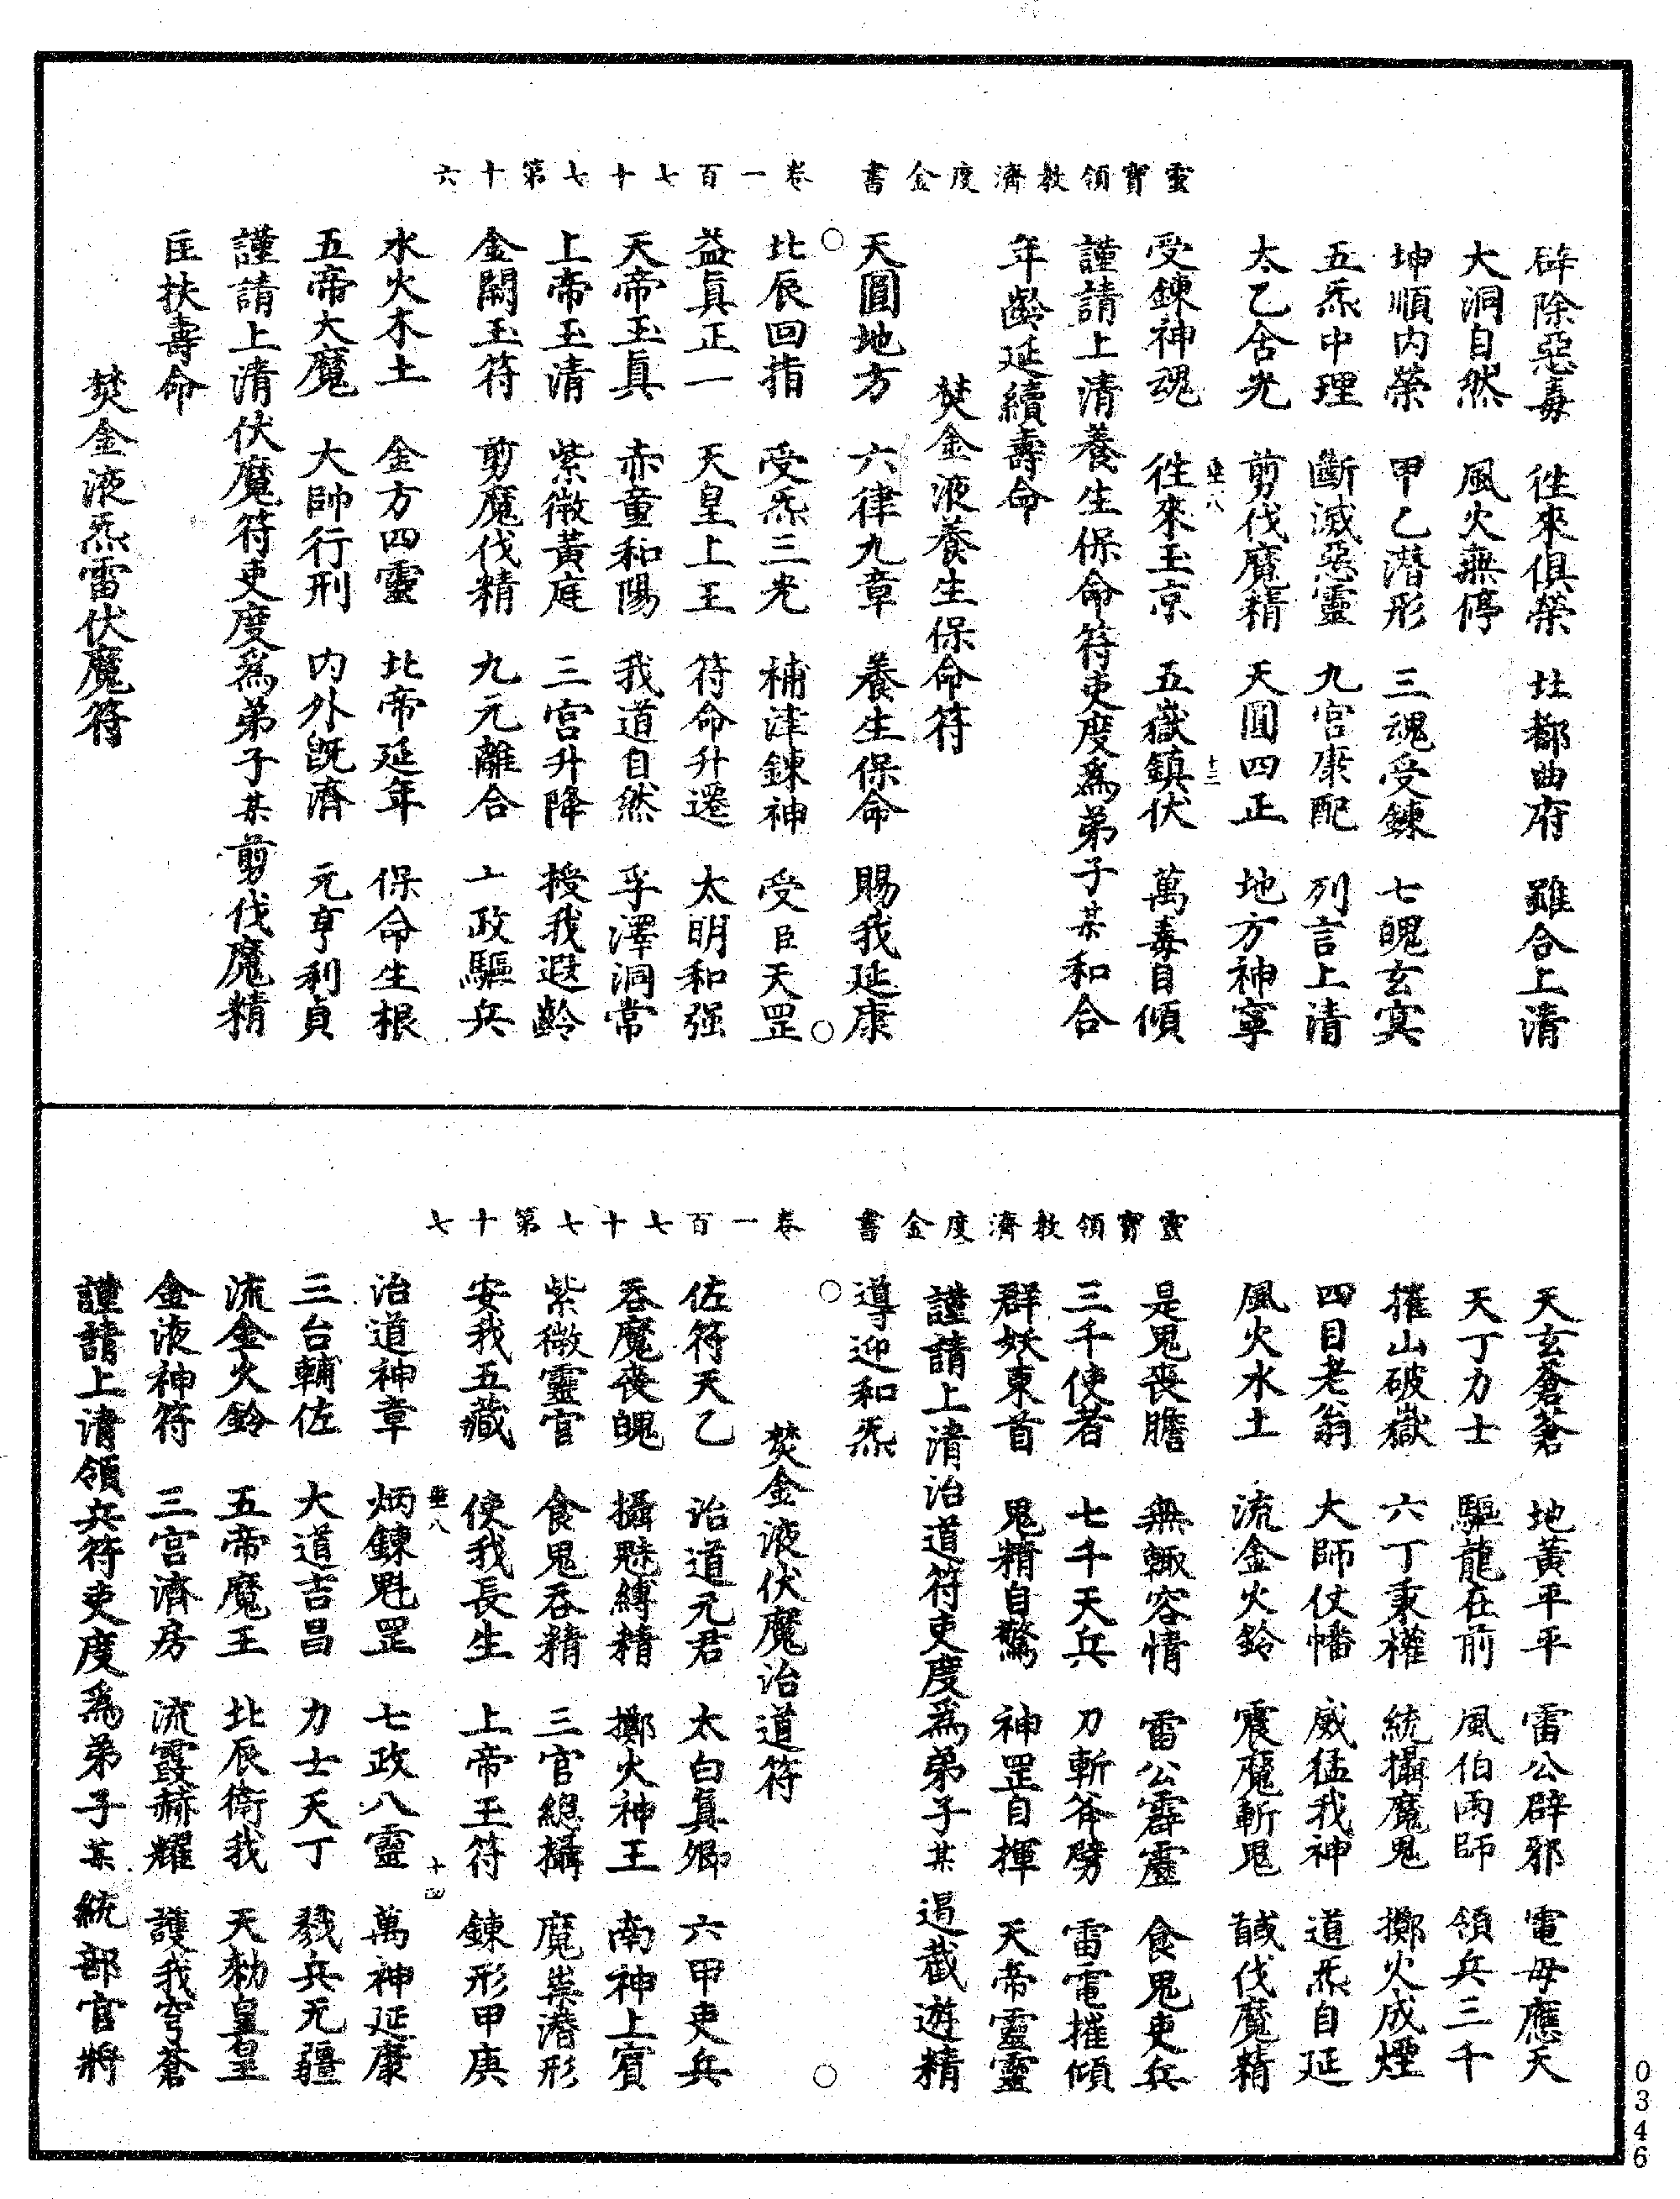 靈寶領教濟度金書　卷一百七十七第十六
辟除惡毒　往來俱榮　北都曲府　雖合上清
大洞自然　風火無停
坤順内榮　甲乙潛形　三魂受鍊　七魄玄冥
五炁中理　斷滅惡靈　九宮康配　列言上清
太乙含光　剪伐魔精　天圓四正　地方神寧
垂八　十三
受鍊神魂　往來玉京　五嶽鎮伏　萬毒自傾
謹請上清養生保命符吏度爲弟子某和合
年齡延續壽命
焚金液養生保命符
天圓地方　六律九章　養生保命　賜我延康
北辰回指　受炁三光　補津鍊神　受臣天罡
益眞正一　天皇上王　符命升遷　太明和强
天帝玉眞　赤童和陽　我道自然　孚澤洞常
上帝玉清　紫微黃庭　三宮升降　授我遐齡
金關玉符　剪魔伐精　九元離合　七政驅兵
水火木土　金方四靈　北帝延年　保命生根
五帝大魔　大帥行刑　内外旣濟　元亨利貞
謹請上清伏魔符吏度爲弟子某剪伐魔精
匡扶壽命
焚金液炁雷伏魔符
靈寶領教濟度金書　卷一百七十七第十七
天玄蒼蒼　地黃平平　雷公辟邪　電母應天
天丁力士　驅龍在前　風伯雨師　領兵三千
摧山破嶽　六丁秉權　統攝魔鬼　擲火成煙
四目老翁　大師仗幡　威猛我神　道炁自延
風火水土　流金火鈴　震魔斬鬼　馘伐魔精
是鬼喪膽　無輙容情　雷公霹靂　食鬼吏兵
三千使者　七千天兵　刀斬斧劈　雷電摧傾
群妖束首　鬼精自驚　神罡自揮　天帝靈靈
謹請上清治道符吏度爲弟子某遏截遊精
導迎和炁
焚金液伏魔治道符
佐符天乙　治道元君　太白眞卿　六甲吏兵
吞魔喪魄　攝魅縛精　擲火神王　南神上賓
紫微靈官　食鬼吞精　三官總攝　魔祟潛形
安我五藏　使我長生　上帝玉符　鍊形甲庚
垂八　十四
治道神章　炳鍊魁罡　七政八靈　萬神延康
三台輔佐　大道吉昌　力士天丁　戮兵无疆
流金火鈴　五帝魔王　北辰衛我　天勑皇皇
金液神符　三宮濟房　流霞赫耀　護我穹蒼
謹請上清領兵符吏度爲弟子某統部官將
0346